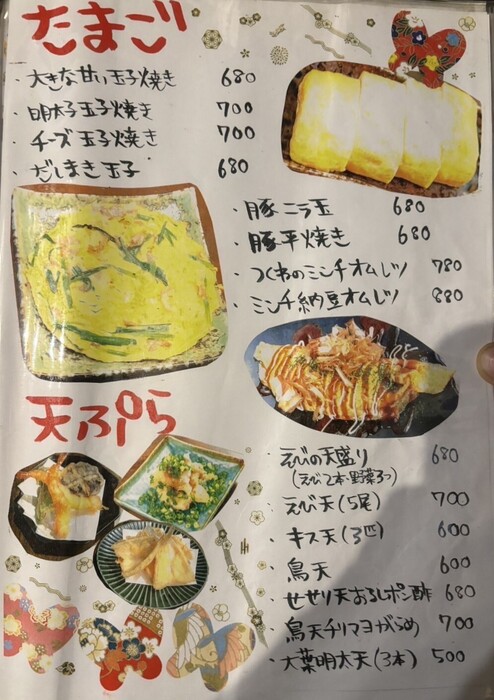 たまご
・大きな甘い玉子焼き 680
・明太子玉子焼き 700
・チーズ玉子焼き 700
・だしまき玉子 680
・豚ニラ玉 680
・豚平焼き 680
・つくねのミンチオムレツ 780
・ミンチ納豆オムレツ 880
天ぷら
・えびの天盛り 680
(えび2本・野菜3つ)
・えび天(5尾) 700
・キス天(3匹) 600
・鳥天 600
・せせり天おろしポン酢 680
・鳥天チリマヨがらめ 700
・大葉明太天(3本) 500